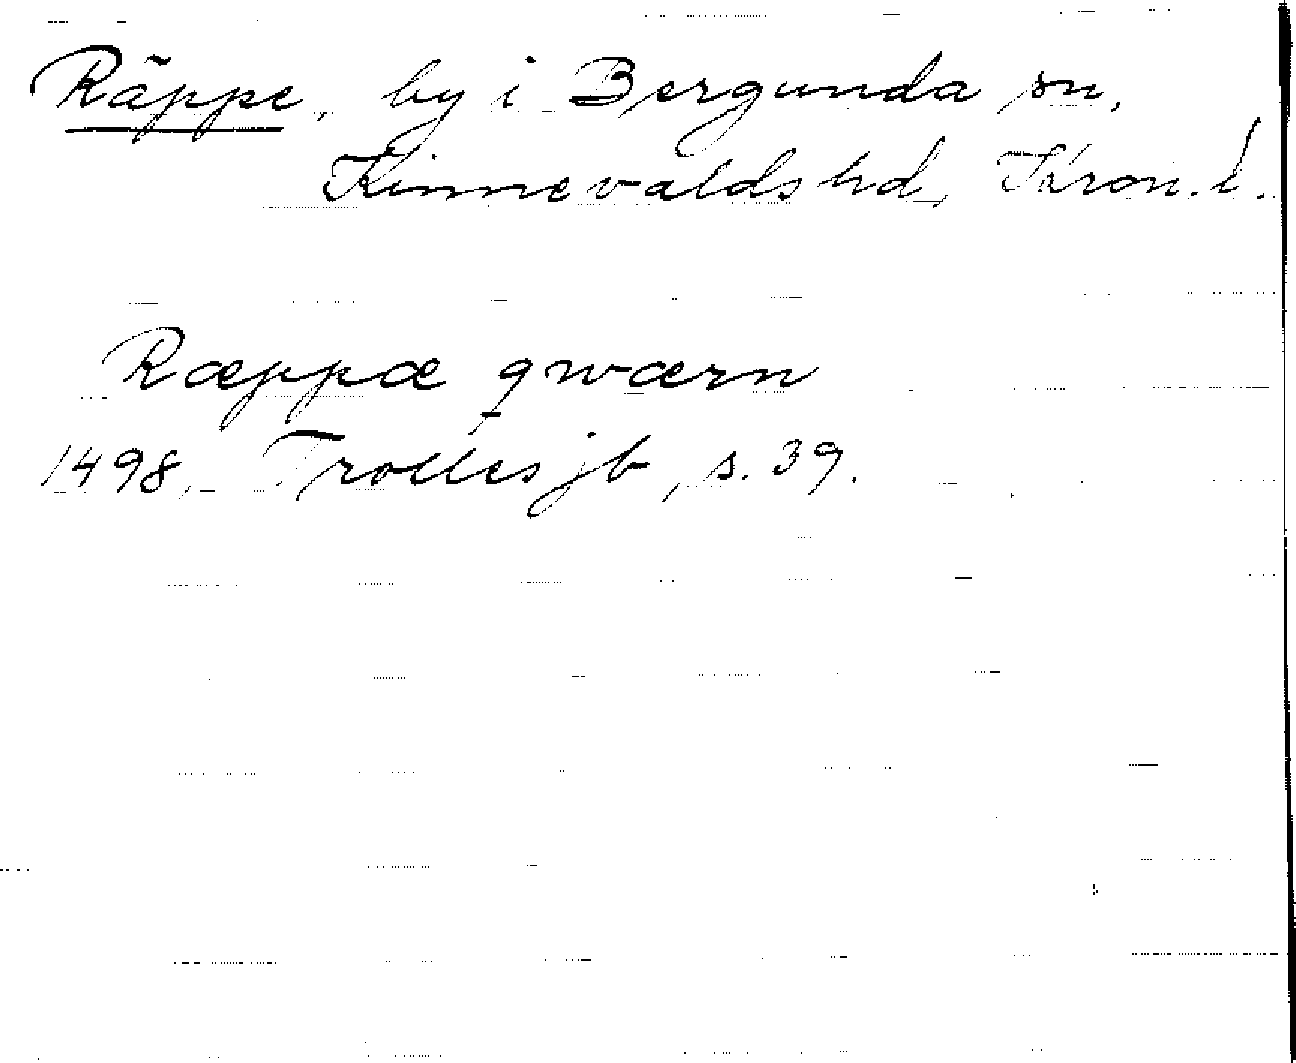 Räppe, by i Bergunda sn,
Kinnevalds hd, Kron. l.
Ræppæ qwærn
1498, Trolles jb, s. 39.